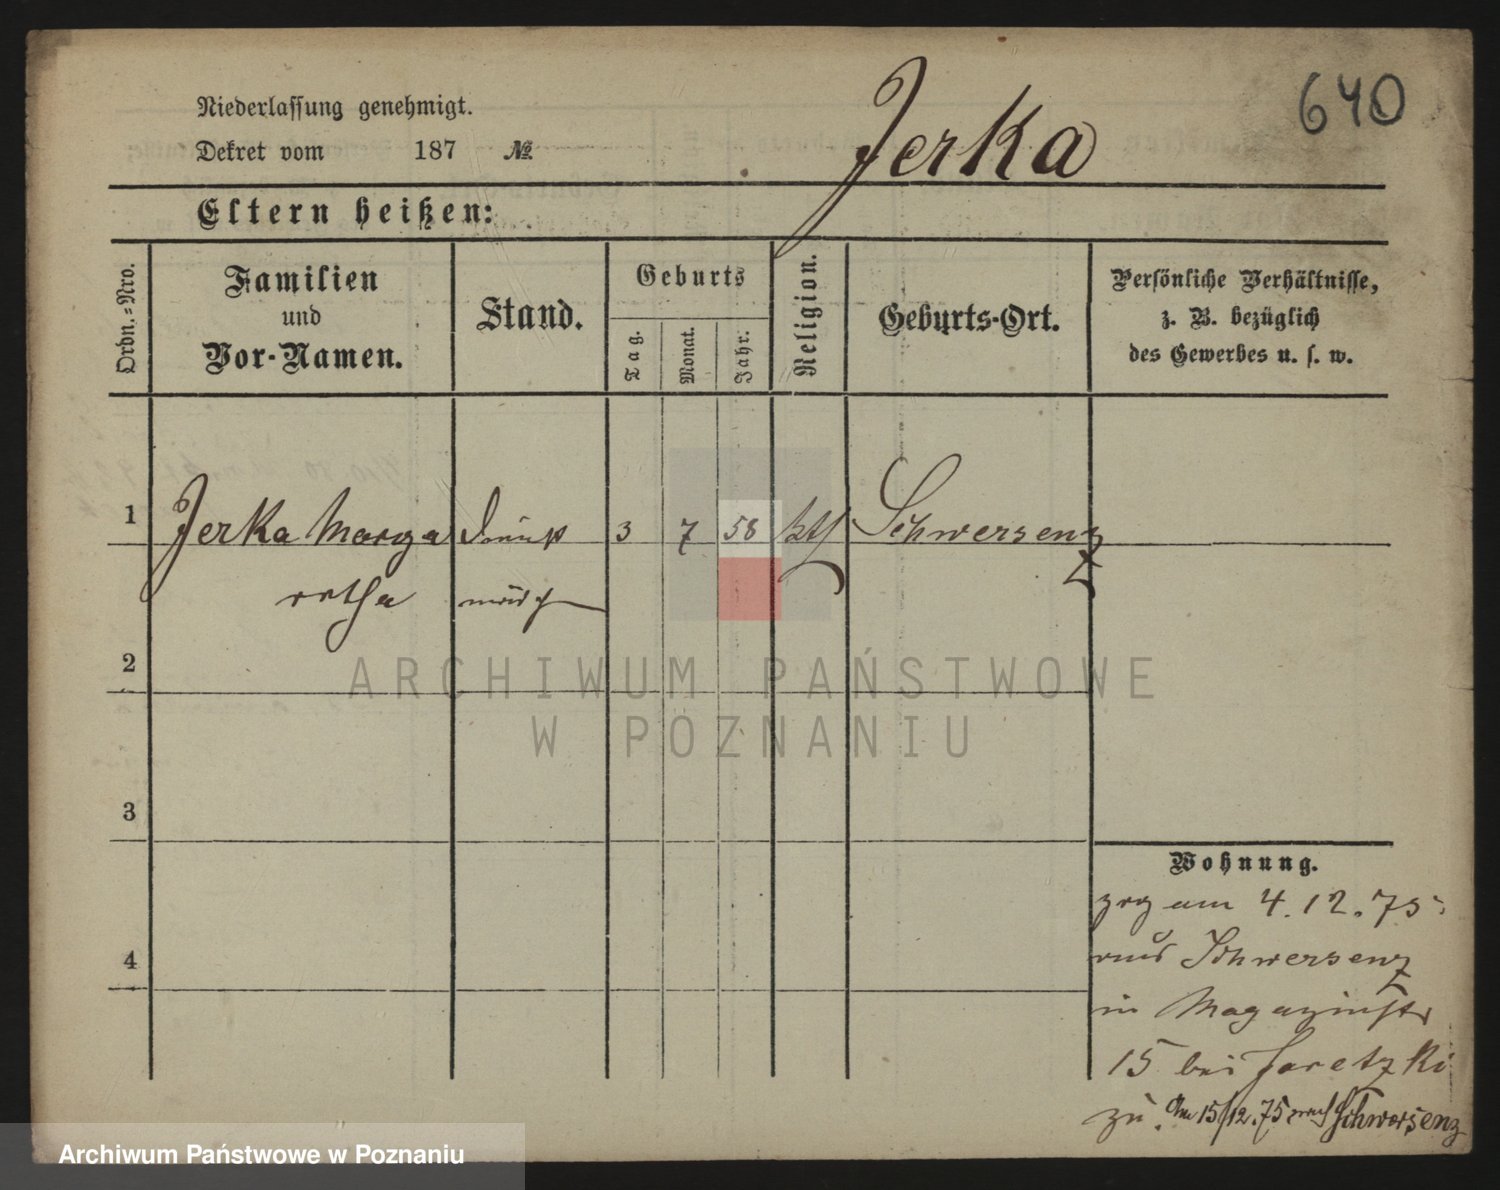 Niederlassung genehmigt.
Dekret vom 187 №
Jerka
640
Eltern heißen:
Ordn.-Nro.
Familien
und
Vor-Namen.
Stand.
Geburts
Tag.
Monat.
Jahr.
Religion.
Geburts-Ort.
Persönliche Verhältnisse,
z. B. bezüglich
des Gewerbes u. s. w.
1 Jerka Marga Dienst 3 7 58 kth Schwersenz
retha mädch
2
ARCHIWUM PAŃSTWOWE
W POZNANIU
3
4
Wohnung.
zog am 4.12.75
aus Schwersenz
in Magazinstr
15 bei Jaretzki
zu. Am 15/12.75 nach Schwersenz
Archiwum Państwowe w Poznaniu